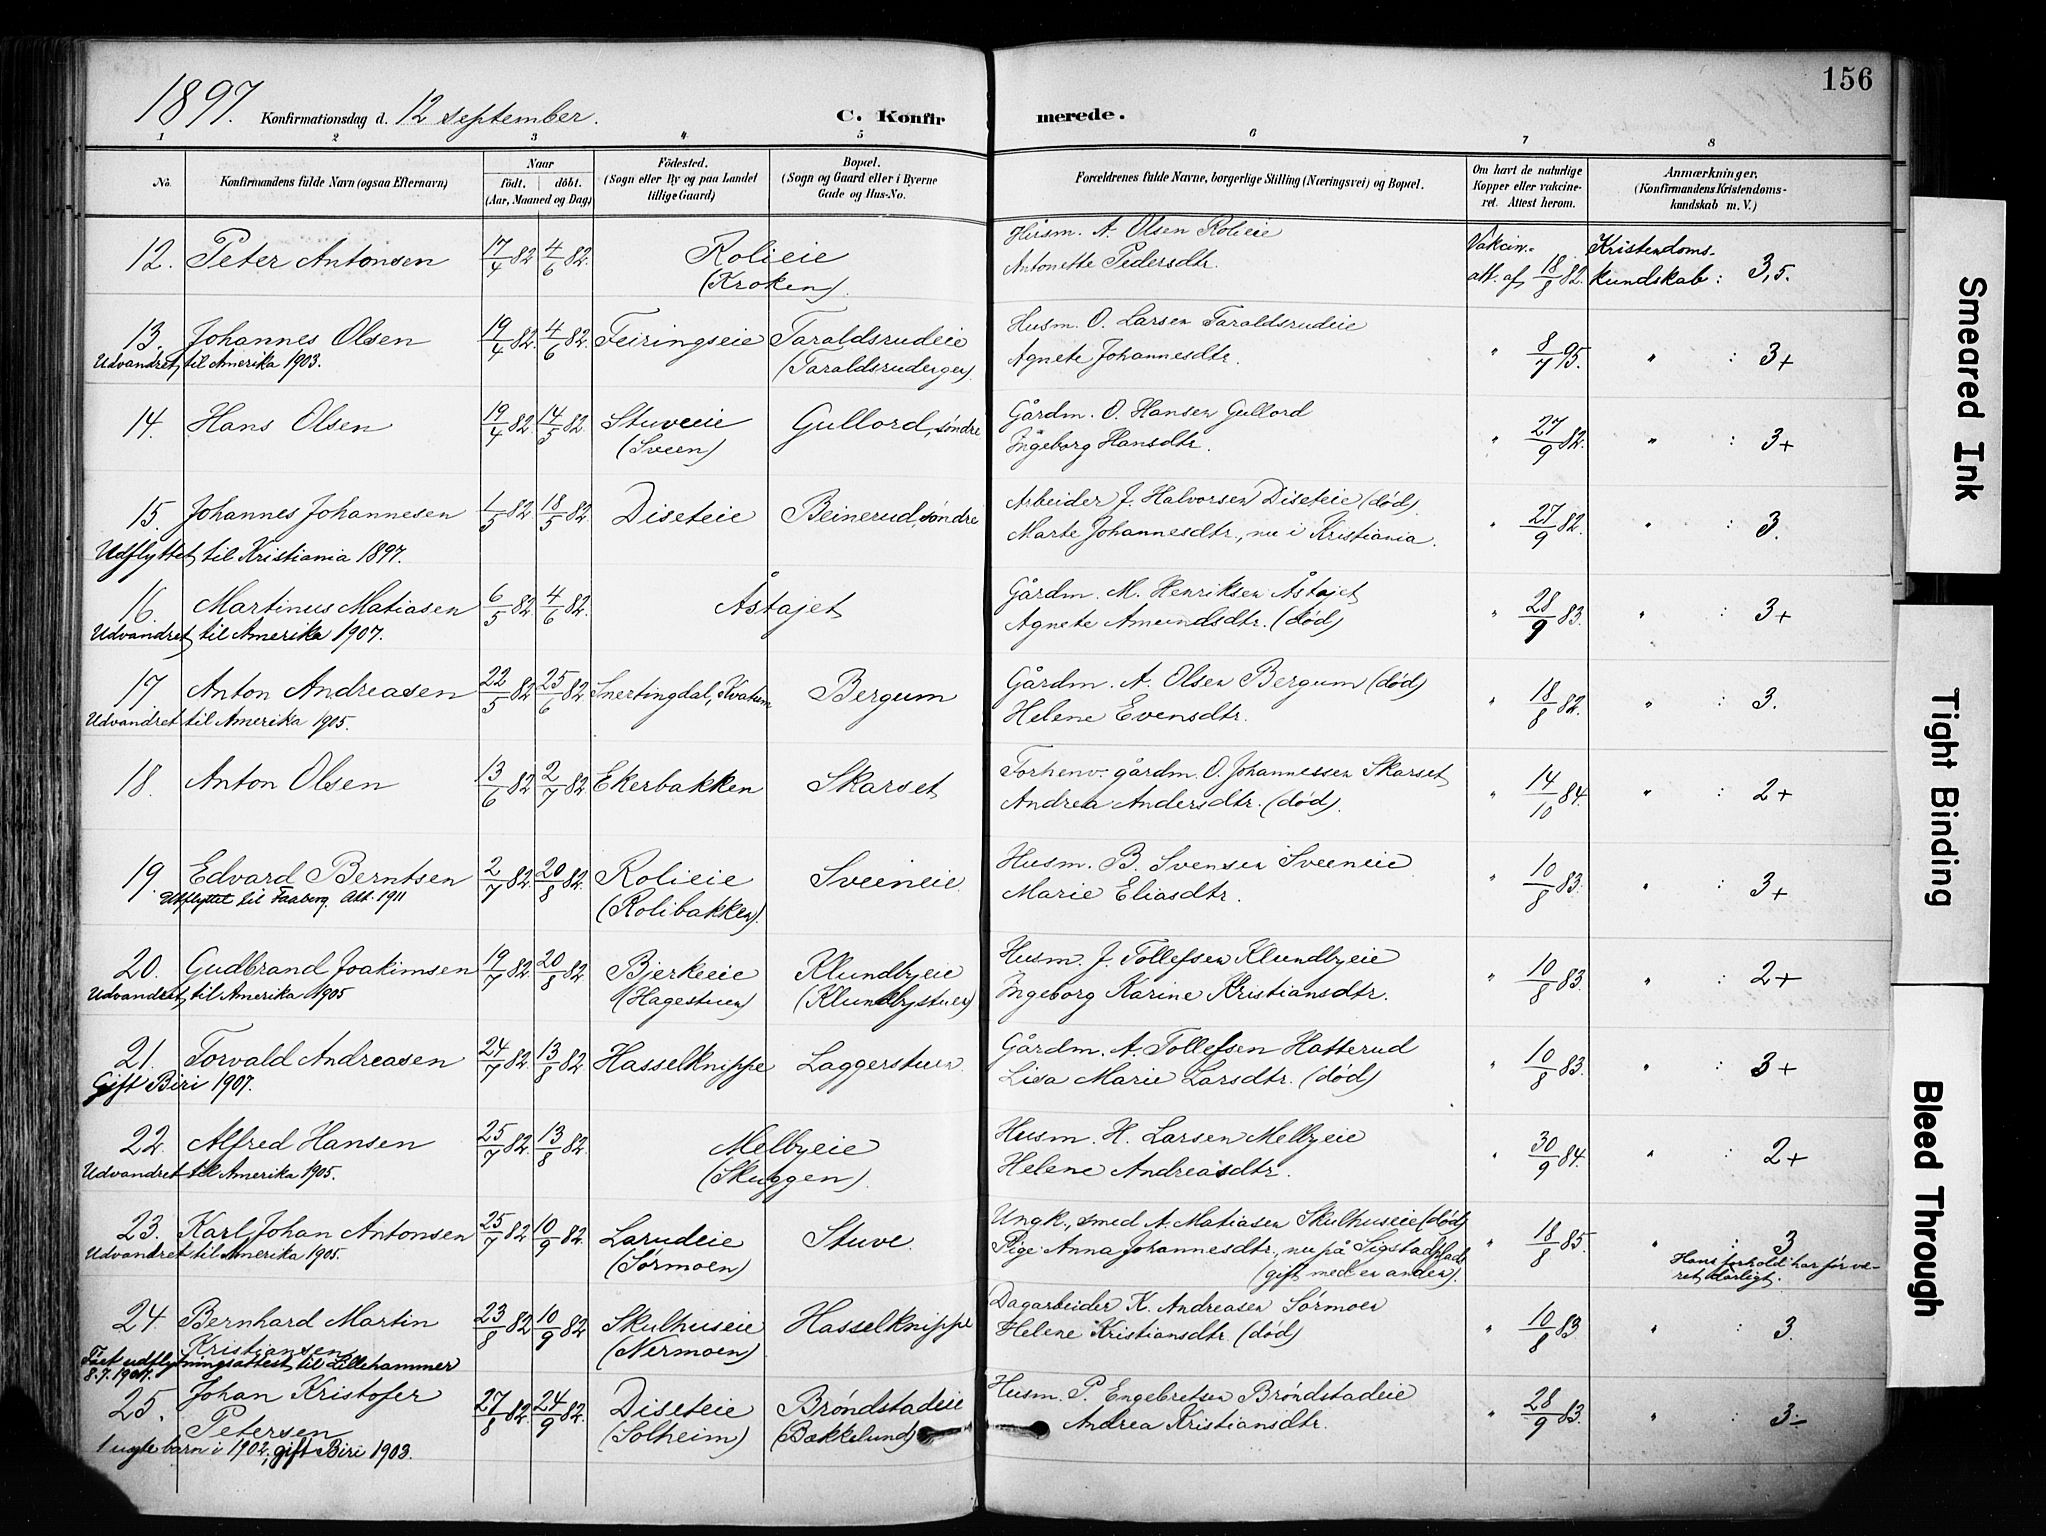 156
1897. Konfirmationsdag d. 12 september. C. Konfirmerede.
1 2 3 4 5 6 7 8
No. Konfirmandens fulde Navn (ogsaa Efternavn) Naar födt. döbt. (Aar, Maaned og Dag) Födested. (Sogn eller By og paa Landet tillige Gaard) Bopæl. (Sogn og Gaard eller i Byerne Gade og Hus-No. Forældrenes fulde Navne, borgerlige Stilling (Næringsvei) og Bopæl. Om havt de naturlige Kopper eller vakcineret. Attest herom. Anmærkninger. (Konfirmandens Kristendomskundskab m. V.)
12. Peter Antonsen 17/4 82 4/6 82. Rolieie (Kroken). Husm. A. Olsen Rolieie
Antonette Pedersdtr. Vakcin.- att. af 18/8 82. Kristendoms- kundskab : 3,5.
13. Johannes Olsen 19/4 82. 4/6 82. Feiringseie Taraldsrudeie (Taraldsrudenger). Husm. O. Larsen Taraldsrudeie
Agnete Johannesdtr. " 8/7 95. " : 3+
Udvandret til Amerika 1903.
14. Hans Olsen 19/4 82 14/5 82. Stuveeie (Sveen) Gullord, søndre Gårdm. O. Hansen Gullord
Ingeborg Hansdtr. " 27/9 82. " : 3+
15. Johannes Johannesen 1/5 82 18/5 82. Diseteie Beinerud, søndre Arbeider J. Halvorsen Diseteie (død)
Marte Johannesdtr., nu i Kristiania. " 27/9 82. " : 3.
Udflyttet til Kristiania 1897.
16. Martinus Matiasen 6/5 82 4/6 82. Åstajet Gårdm. M. Henriksen Åstajet
Agnete Amundsdtr. (død) " 28/9 83. " : 3+
Udvandret til Amerika 1907.
17 Anton Andreasen 22/5 82 25/6 82 Snertingdal, Kvatum Bergum Gårdm. A. Olsen Bergum (død)
Helene Evensdtr. " 18/8 82. " : 3.
Udvandret til Amerika 1905.
18. Anton Olsen 13/6 82 2/7 82 Ekerbakken Skarset Forhenv. gårdm. O. Johannessen Skarset
Andrea Andersdtr. (død). " 14/10 84. " : 2+
19. Edvard Berntsen 2/7 82. 20/8 82. Rolieie (Rolibakken). Sveeneie Husm. B. Svensen Sveeneie
Marie Eliasdtr. " 10/8 83. " : 3+
Utflyttet til Faaberg. Att. 1911
20. Gudbrand Joakimsen 19/7 82. 20/8 82. Bjerkeeie (Hagestuen) Klundbyeie (Klundbystuen) Husm. J. Tollefsen Klundbyeie
Ingeborg Karine Kristiansdtr. " 10/8 83. " : 2+
Udvandret til Amerika 1905
21. Torvald Andreasen 24/7 82. 13/8 82. Hasselknippe Laggerstuen Gårdm. A. Tollefsen Hatterud
Lisa Marie Larsdtr. (død) " 10/8 83. " : 3+
Gift Biri 1907.
22. Alfred Hansen 25/7 82. 13/8 82. Melbyeie (Skuggen). Husm. H. Larsen Melbyeie
Helene Andreasdtr. " 30/9 84. " : 2+
Udvandret til Amerika 1905.
23. Karl Johan Antonsen 25/7 82 10/9 82. Larudeie (Sørmoen) Stuve Ungk., smed A. Matiasen Skulhuseie (død)
Pige Anna Johannesdtr., nu på Sigstadplads
(gift med en anden). " 18/8 85. " : 3
Hans forhold har før været dårligt.
Udvandret til Amerika 1905.
24. Bernhard Martin Kristiansen 23/8 82 10/9 82 Skulhuseie (Nermoen). Hasselknippe Dagarbeider K. Andreasen Sørmoen
Helene Kristiansdtr. (død) " 10/8 83 " : 3.
Fået udflytningsattest til Lillehammer
8.7.1907.
25. Johan Kristofer Petersen 27/8 82. 24/9 82. Diseteie (Solheim) Brøndstadeie (Bækkelund) Husm. P. Engebretsen Brøndstadeie
Andrea Kristiansdtr. " 28/9 83. " : 3-
1 uægte barn i 1902, gift Biri 1903.
Smeared Ink
Tight Binding
Bleed Through